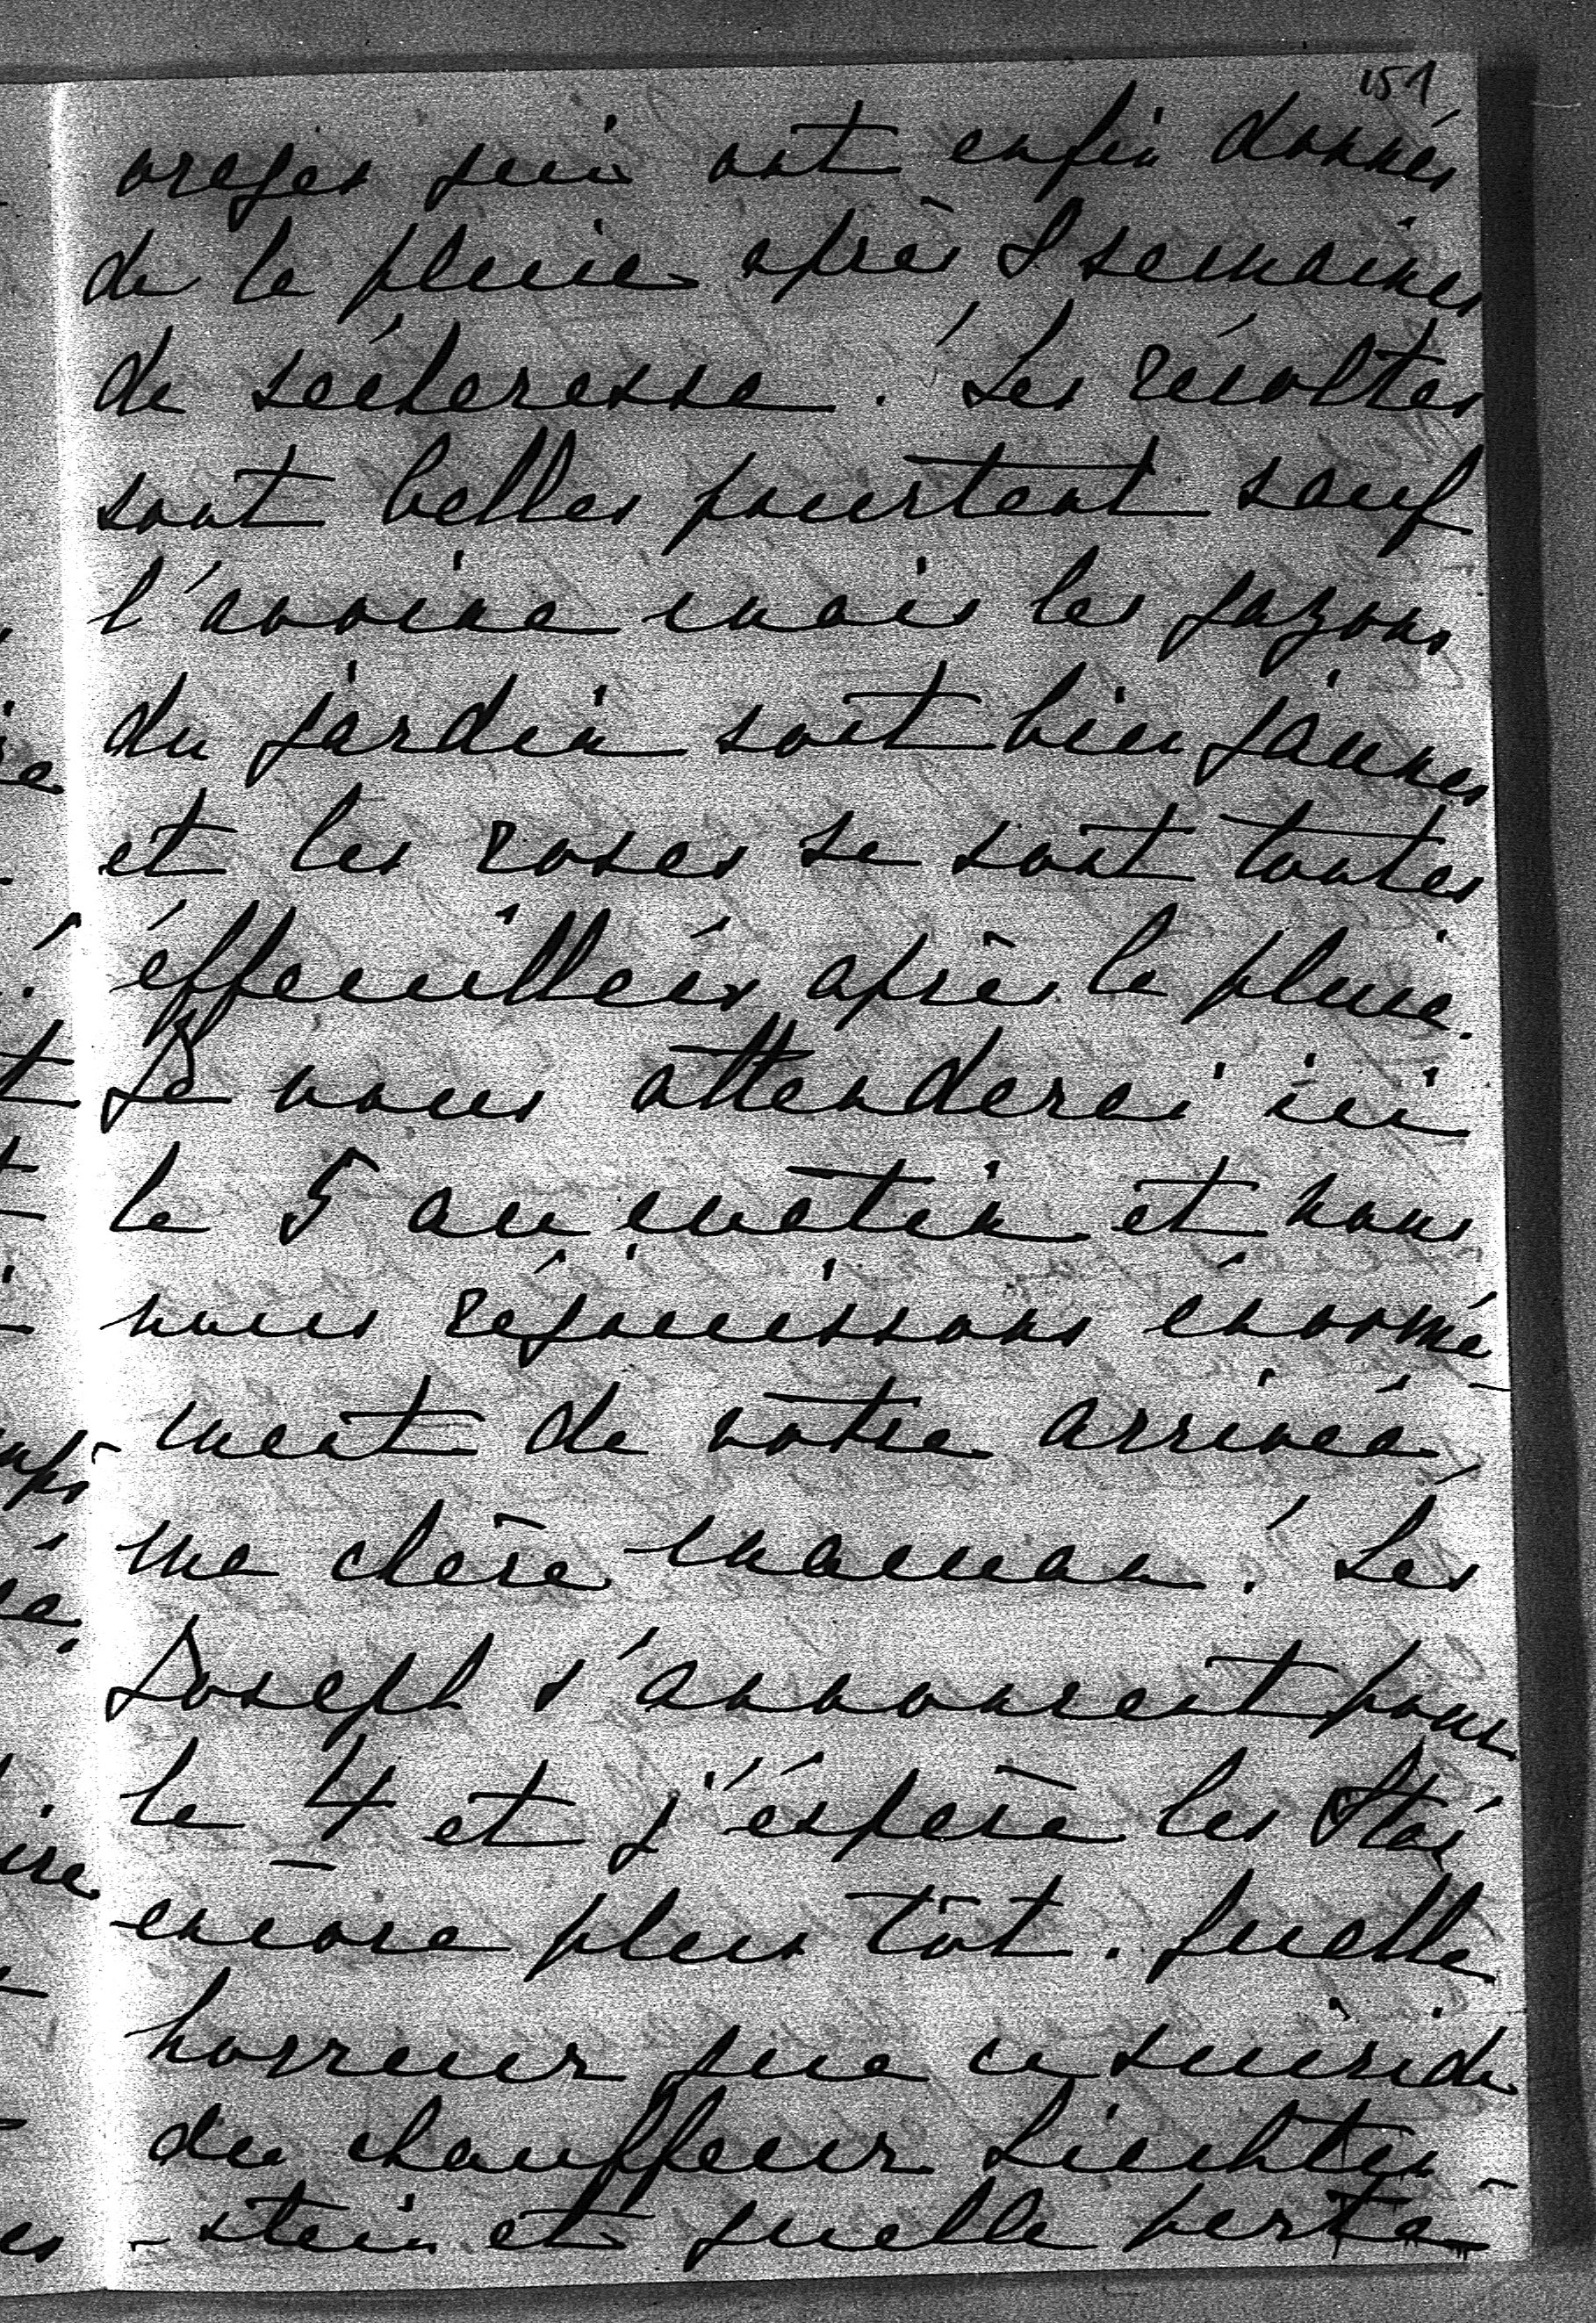 151
orages qui ont enfin donnés
de la pluie après 8 semaines
de sécheresse. Les récoltes
sont belles pourtant sauf
l'avoine mais les gazons
du jardin sont bien jaunes
et les roses se sont toutes
éffeuilleés après la pluie.
Je vous attenderai ici
le 5 au matin et nous
nous réjouissons énormé-
ment de votre arriveé
ma chère maman! Les
Joseph s'annoncent pour
le 4 et j'éspère les
encore plus tôt. Quelle
horreur que ce suicide
du chauffeur Liechten-
-stein et quelle perte